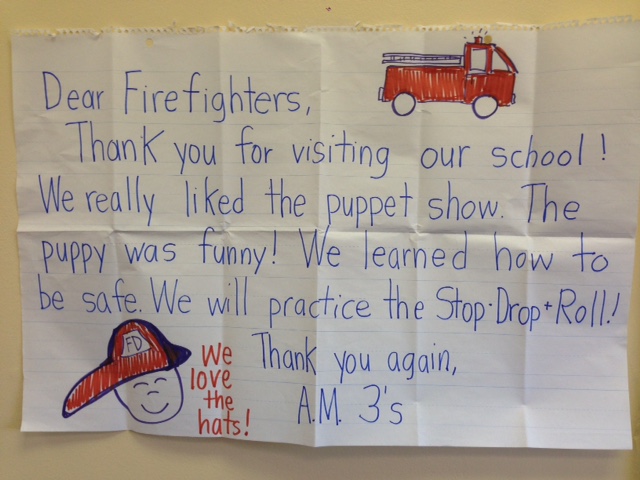 Dear Firefighters,
Thank you for visiting our school!
We really liked the puppet show. The
puppy was funny! We learned how to
be safe. We will practice the Stop·Drop+Roll!
FD
We
love
the
hats!
Thank you again,
A.M. 3's